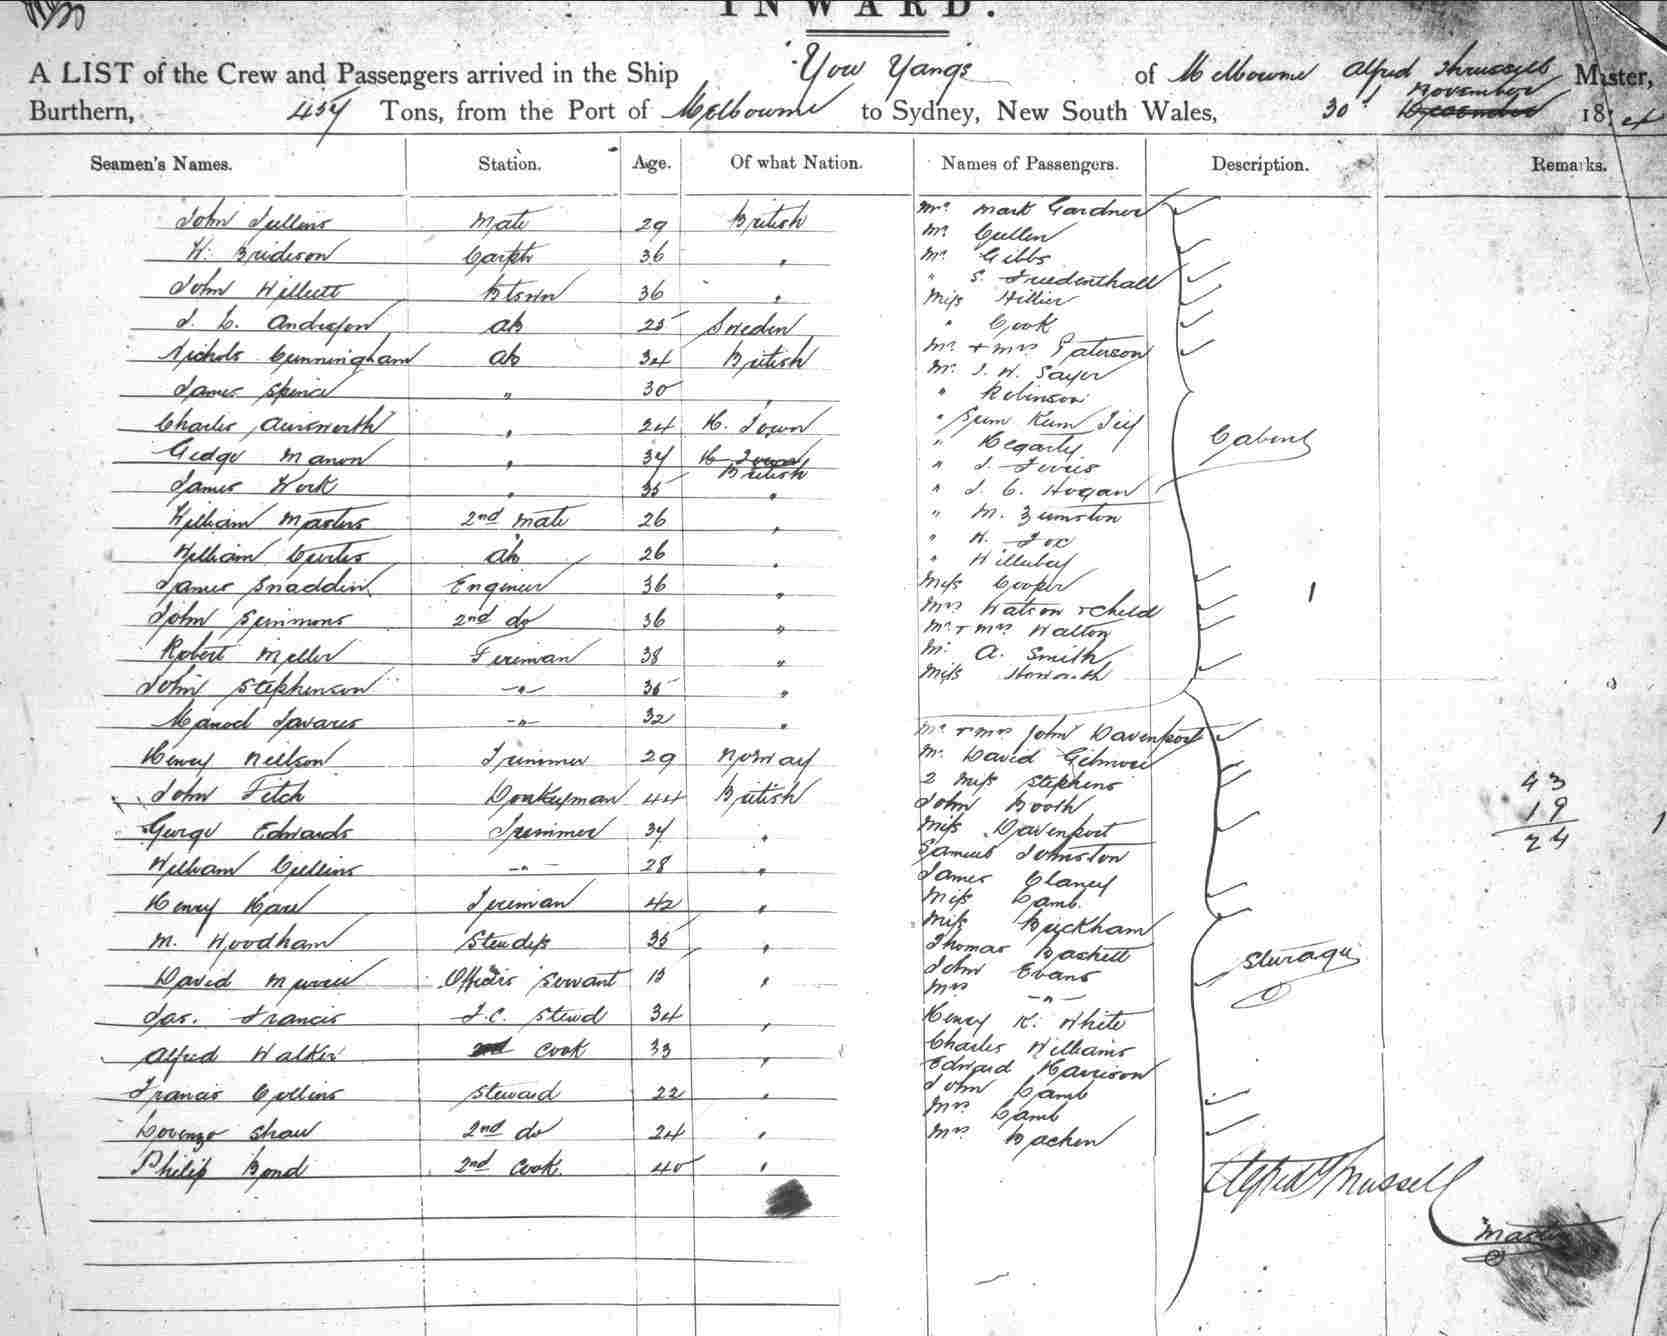 INWARD.
A LIST of the Crew and Passengers arrived in the Ship "You Yangs of Melbourne Alfred Thrussell Master,
Burthern, 457 Tons, from the Port of Melbourne to Sydney, New South Wales, 30th November December 18
Seamen's Names. Station. Age. Of what Nation. Names of Passengers. Description. Remarks.
John Mate 29 British
W. Bridson Carptr 36 "
John Willett Btswn 36 "
J. C. Anderson ab 25 Sweden
Nichols Cunningham ab 34 British
James Spence " 30 "
Charles Ainsworth " 24 H. Town
Manon " 37 H. Town British
James Work " 35 "
William Masters 2nd Mate 26 "
William Curtis ab 26 "
James Snaddin Engineer 36 "
John Simmons 2nd do 36 "
Robert Miller Fireman 38 "
John Stephenson -"- 35 "
Tavares -"- 32 "
Henry Neilson Trimmer 29 Norway
John Fitch Donkeyman 44 British
George Edwards Trimmer 37 "
William Cullins -"- 28 "
Henry Hare Fireman 42 "
M. Woodham Stewdss 35 "
David Officers Servant "
Jas. Francis F.C. Stewd 34 "
Alfred Walker 2nd Cook 33 "
Francis Collins Steward 22 "
Lorenzo Shaw 2nd do 24 "
Philip Bond 2nd Cook. 40 "
Mr. Mark Gardner
Mr Cullen
Mr Gibbs
" S. Friedenthall
Miss Hillier
" Cook
Mr. + Mrs Paterson
Mr. J. W. Sayer
" Robinson
" Sum Kum
" Hegarty
" J.
" J. C. Hogan
" M. Zumston
" W. Fox
" Willeby
Miss Cooper
Mrs Watson + Child
Mr. + Mrs Walton
Mr A. Smith
Miss Howorth
Cabin
Mr + Mrs John Davenport
Mr. David Gilmore
2 Miss Stephens
John Booth
Miss Davenport
Samuel Johnston
James Clancy
Miss Lamb.
Miss Bickham
Thomas Baskett
John Evans
Mrs -"-
Henry K. White
Charles Williams
Edward Harrison
John Lamb
Mrs Lamb
Mrs Bachen
Steerage
43
19
24
Alfred Thrussell
Master